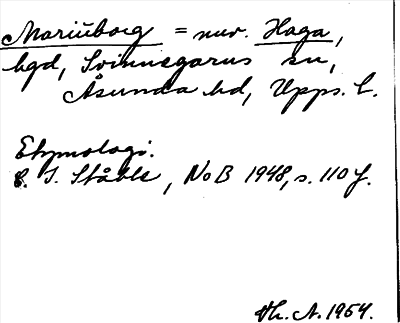 Mariüborg = nuv. Haga,
hgd, Svinnegarns sn,
Åsunda hd, Upps. l.
Etymologi.
C. I. Ståhle, NoB 1948, s. 110 f.
Vh. A. 1954.